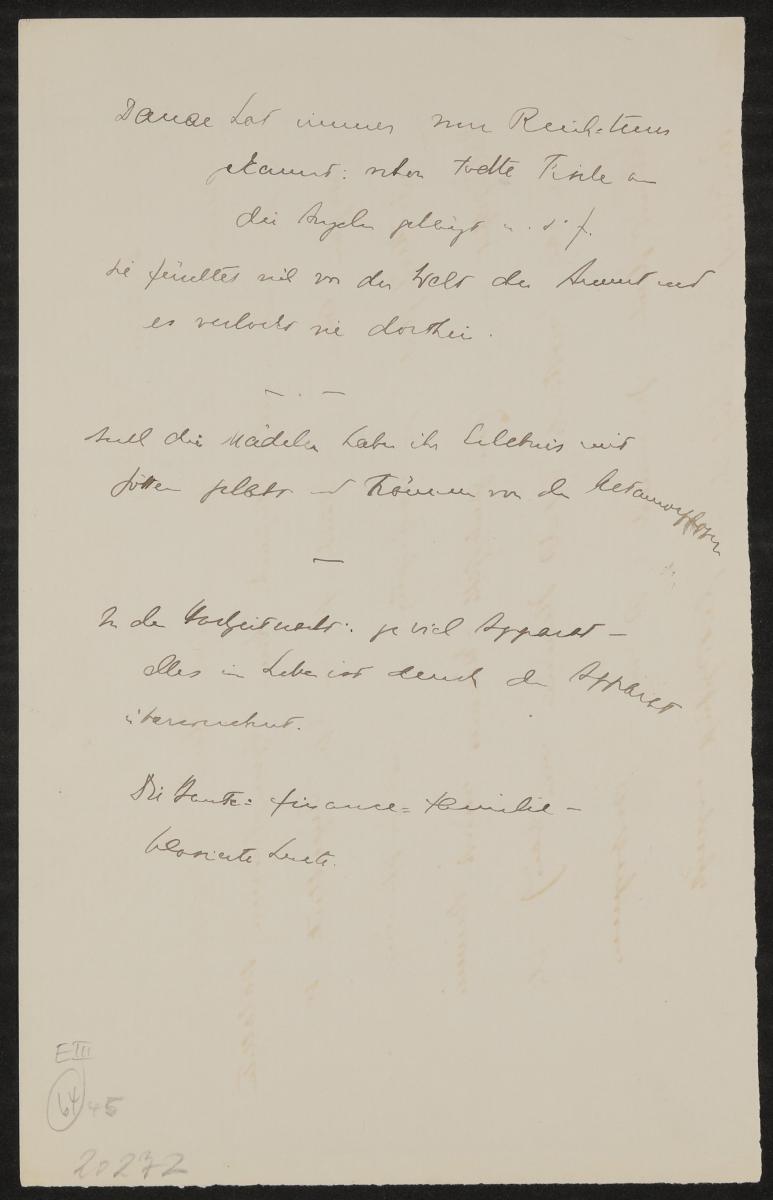 Danae hat immer nur Reichtum
gekannt: schon todte Fische an
die Angeln gehängt u. s. f.
sie fürchtet viel von der Welt der Armut und
es verlockt sie dorthin.
— . —
Auch die Mädchen haben ihr Erlebnis mit
Göttern gehabt und träumen von den Metamorphosen
—
In der Hochzeitsnacht: zu viel Apparat –
alles im Leben ist durch den Apparat
überwuchert.
Die Haute=finance=Familie –
blasierte Leute.
EIII
64 45
20272